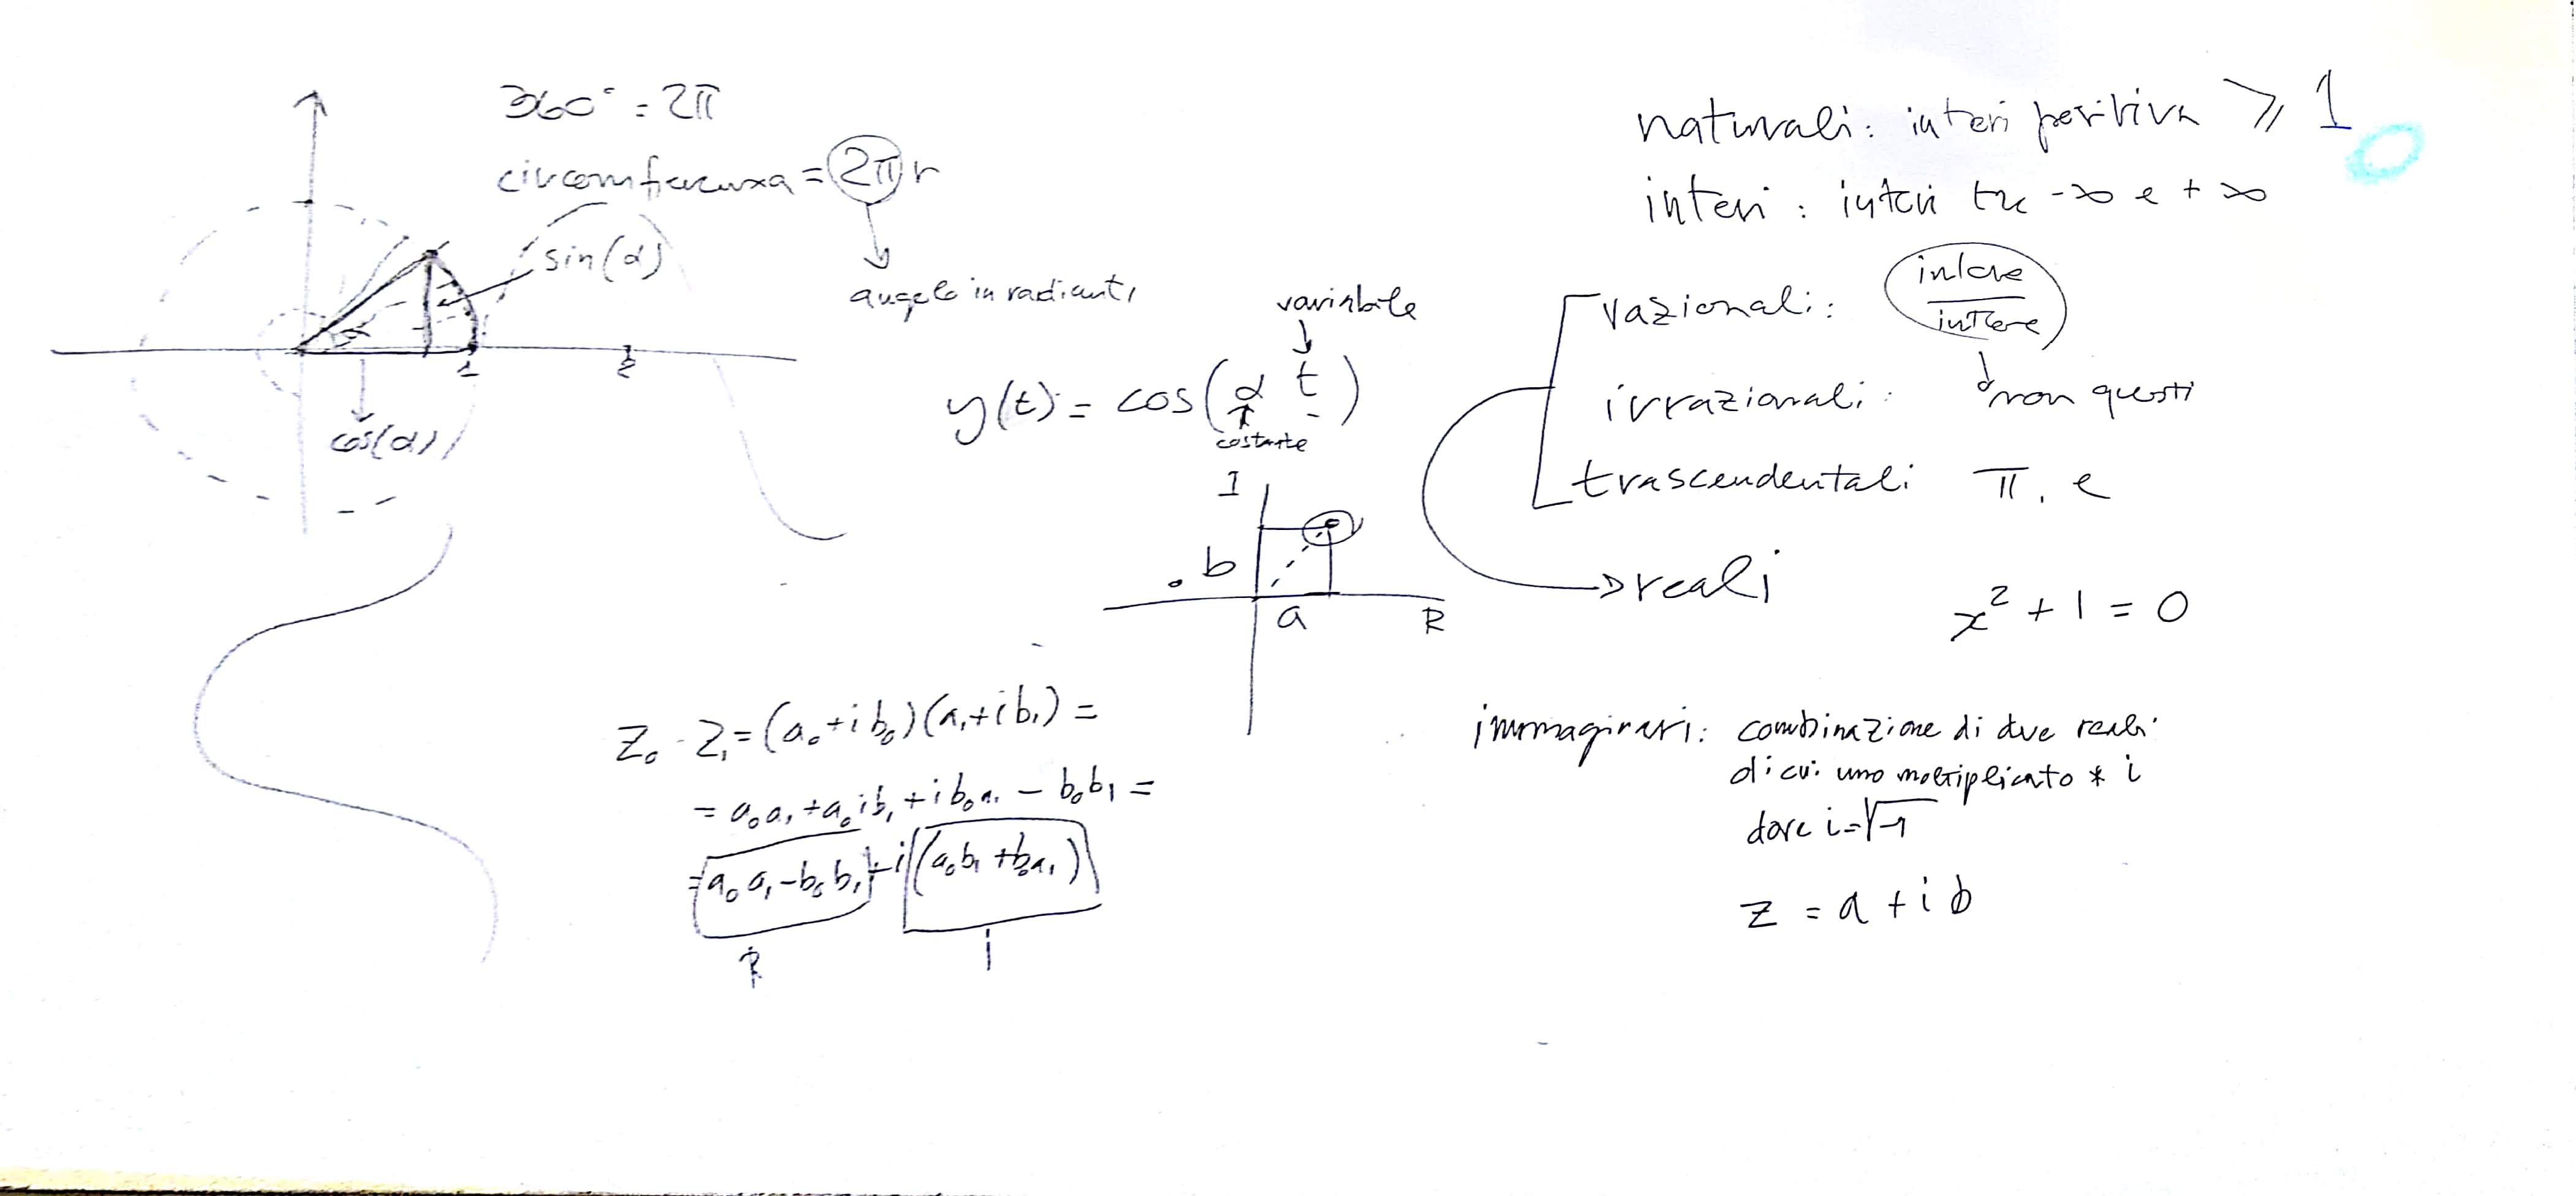 360° = 2π
circomferenza = 2π r
sin(α)
angolo in radianti
1
2
cos(α)
variabile
y(t) = cos(α t)
costante
I
b
a
R
z₀ · z₁ = (a₀ + i b₀)(a₁ + i b₁) =
= a₀a₁ + a₀ i b₁ + i b₀ a₁ − b₀b₁ =
= a₀ a₁ − b₀ b₁ + i (a₀b₁ + b₀a₁)
R
I
naturali: interi positivi ⩾ 1
interi: interi tra -∞ e +∞
razionali: intero
intero
irrazionali: non questi
trascendentali π, e
reali
x² + 1 = 0
immaginari: combinazione di due reali
di cui uno moltiplicato * i
dove i = √-1
z = a + i b